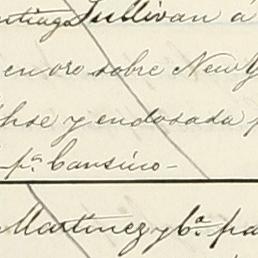 Sullivan á
en oro sobre New Y
y endosada p
pª Cansino -
Martinez y Cª. pa